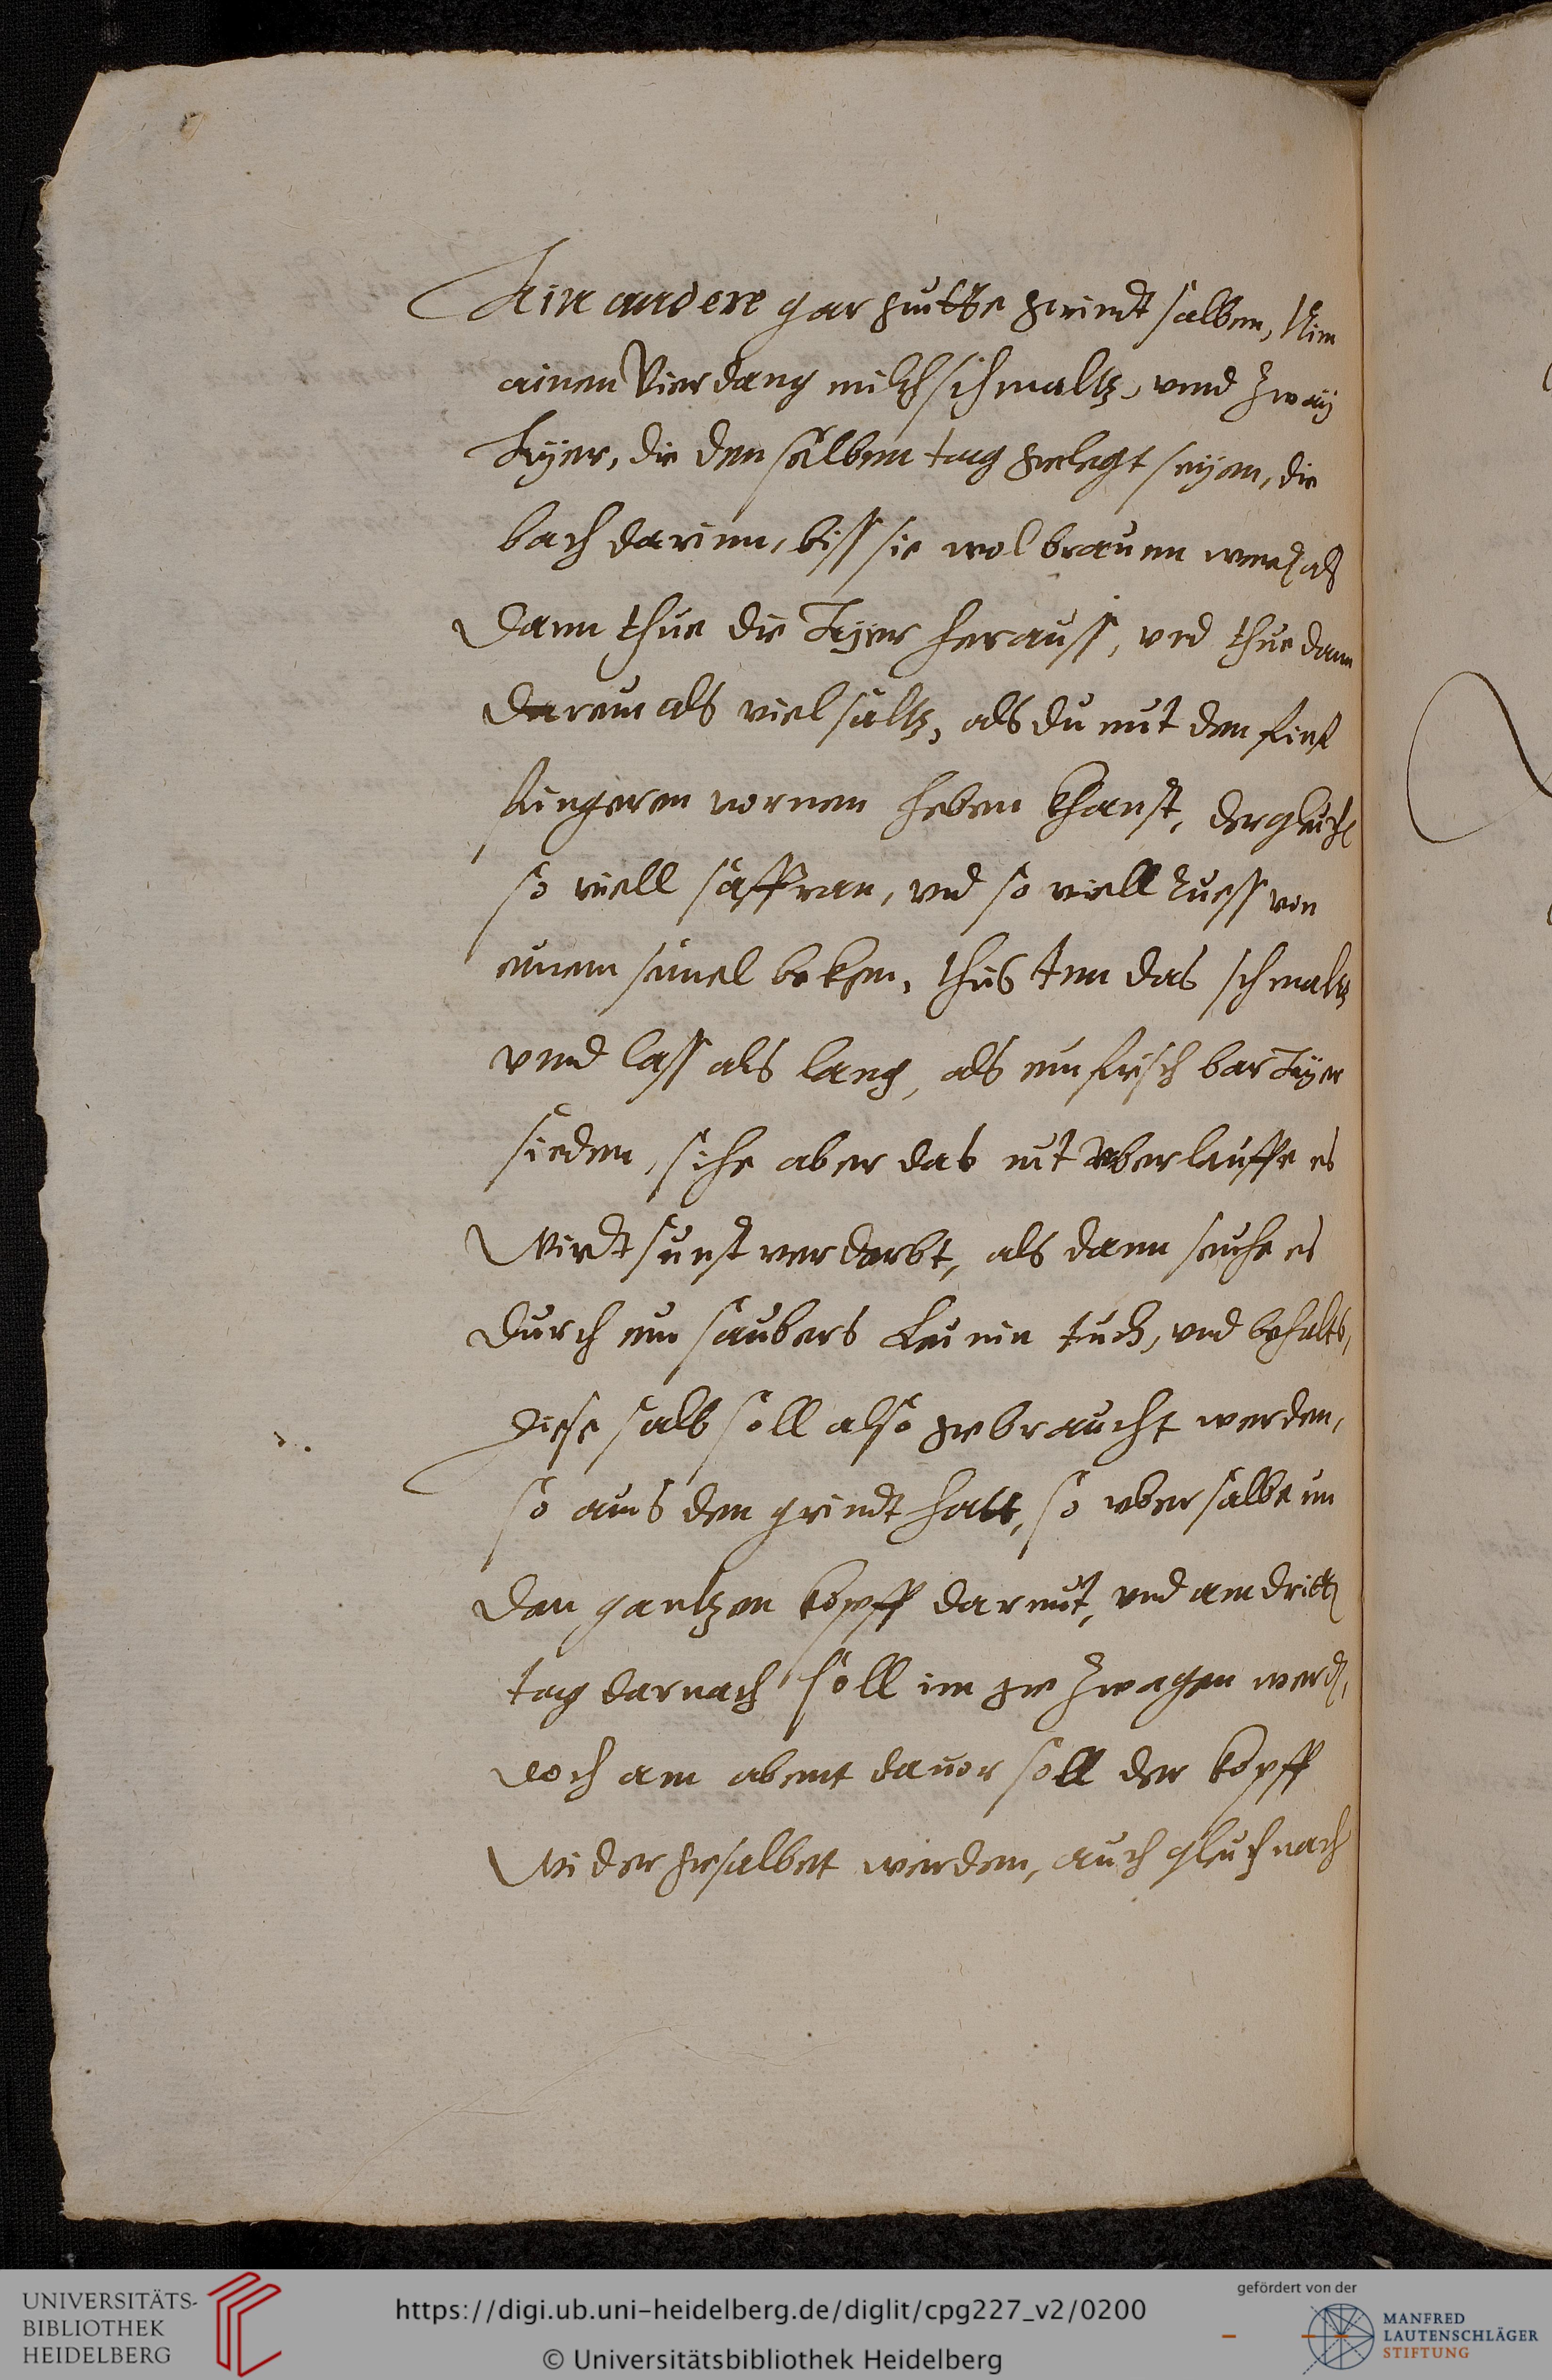 Ain andere gar guette grindt salben, Nim
ainen Vierdang milchschmaltz, vnnd zway
Ayer, die denselben tag gelegt seyen, die
bach darinn, biss sie wol braunn werden als
Dann thue die Ayer herauss, vnd thue dann
darein als viel saltz, als du mit den finf
fingeren vornen heben khanst, dergleichen
so viell saffran, vnd so viell Ruess von
einem simel bekhen, thus Inn das schmaltz
vnnd lass als lang, als ein frisch bar Ayer
sieden, sihe aber das nit Vberlauffe es
Wirdt sunst verderbt, als dann seuhe es
durch ein saubers Leinin tuch, vnd behalts,
Diese salb soll also gebraucht werden,
so ains den grindt hatt, so vbersalbe im
den gantzen kopff darmit, vnd am dritten
tag darnach soll im gezwagen werden,
doch am abent dauor soll der kopff
Wider gesalbet werden, auch gleich nach
UNIVERSITÄTS-
BIBLIOTHEK
HEIDELBERG
https://digi.ub.uni-heidelberg.de/diglit/cpg227_v2/0200
© Universitätsbibliothek Heidelberg
gefördert von der
MANFRED
LAUTENSCHLÄGER
STIFTUNG